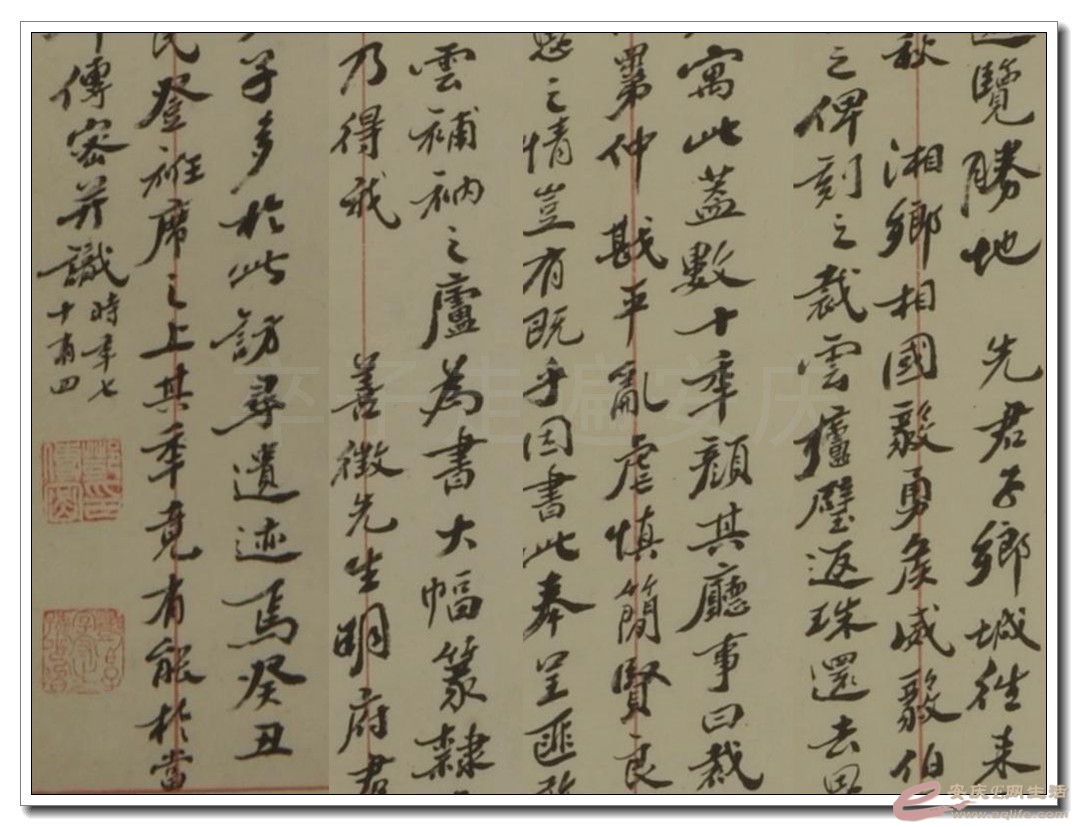 覽勝地 先君子鄉城往来
秋 湘鄉相國毅勇侯威毅伯
之俾刻之裁雲 璧返珠還去
寓此蓋數十年顏其廳事曰裁
弟仲 戡平亂虐慎簡賢良
之情豈有既乎因書此奉呈匪敢
雲補衲之廬為書大幅篆隸
乃得我 善徵先生明府君
子多於此訪尋遺迹焉癸丑
民登袵席之上其年竟有能於當
傳密并識
時年七
十有四
卒子走遍安庆
安庆E网生活
www.aqlife.com